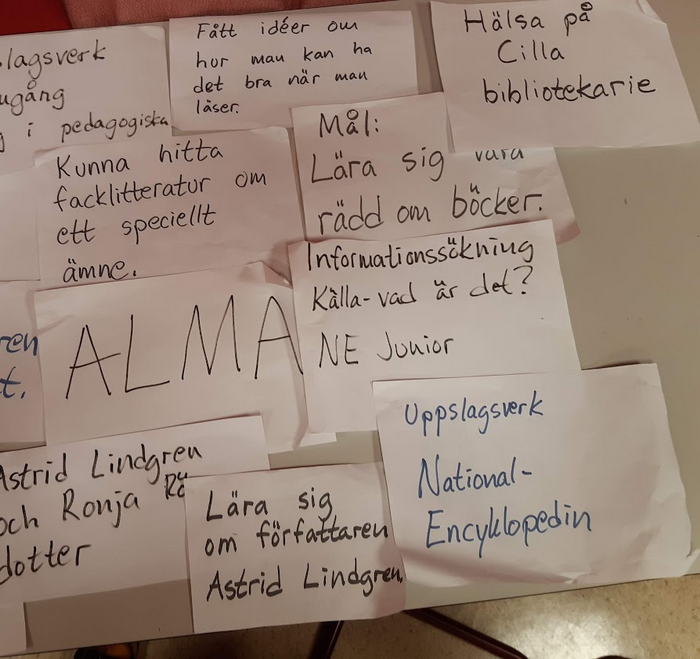 Fått idéer om
hur man kan ha
det bra när man
läser.
Hälsa på
Cilla
bibliotekarie
lagsverk
i pedagogiska
Mål:
Lära sig vara
rädd om böcker.
Kunna hitta
facklitteratur om
ett speciellt
ämne.
Informationssökning
Källa-vad är det?
NE Junior
ALMA
ren
t.
Uppslagsverk
National-
Encyklopedin
Astrid Lindgren
och Ronja Rö
dotter
Lära sig
om författaren
Astrid Lindgren.